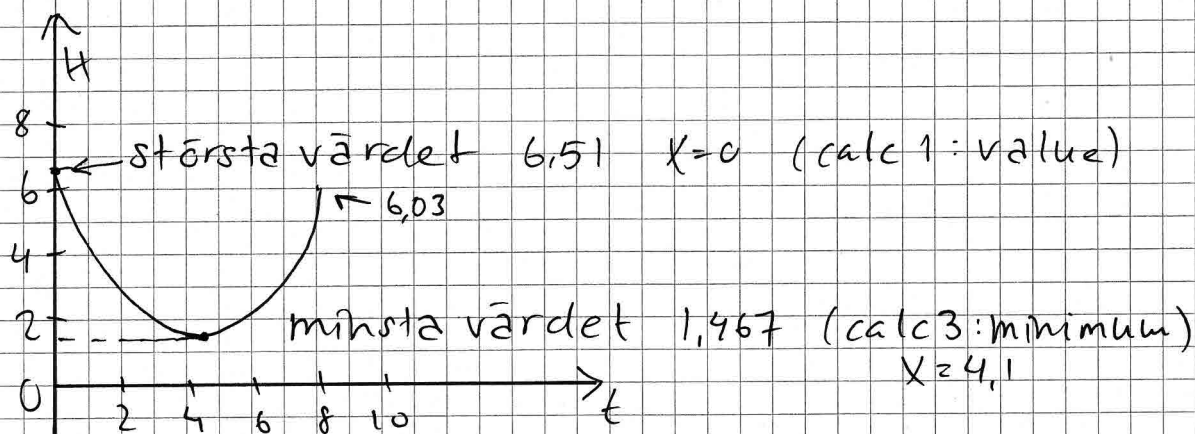 H
8
största värdet 6,51 X=0 (calc 1: value)
6
6,03
4
2
minsta värdet 1,467 (calc 3: minimum)
X=4,1
0
2 4 6 8 10
t